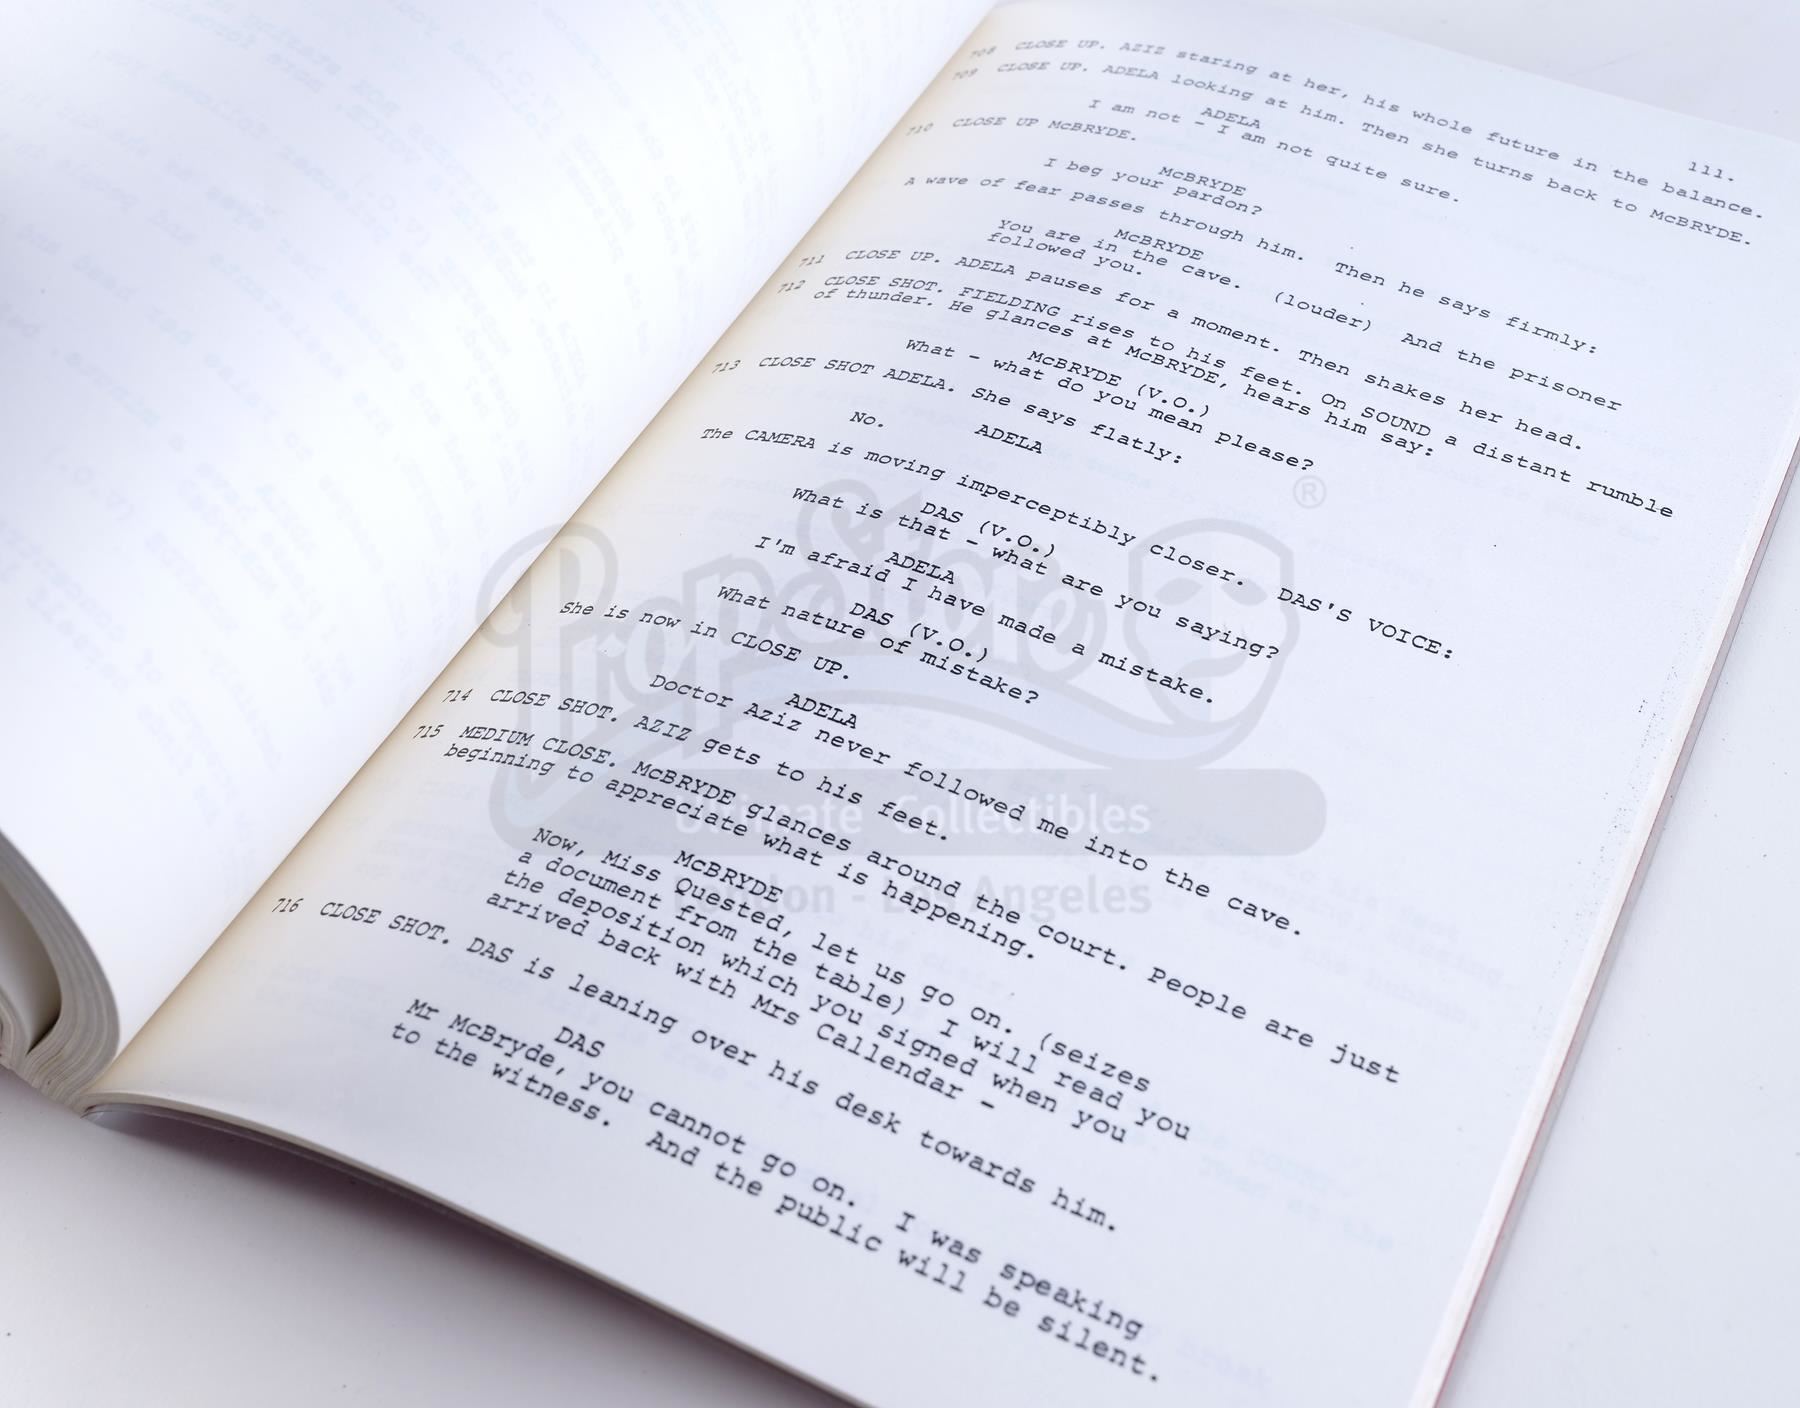 111.
708 CLOSE UP. AZIZ staring at her, his whole future in the balance.
709 CLOSE UP. ADELA looking at him. Then she turns back to McBRYDE.
ADELA
I am not - I am not quite sure.
710 CLOSE UP McBRYDE.
McBRYDE
I beg your pardon?
A wave of fear passes through him. Then he says firmly:
McBRYDE
You are in the cave. (louder) And the prisoner
followed you.
711 CLOSE UP. ADELA pauses for a moment. Then shakes her head.
712 CLOSE SHOT. FIELDING rises to his feet. On SOUND a distant rumble
of thunder. He glances at McBRYDE, hears him say:
McBRYDE (V.O.)
What - what do you mean please?
713 CLOSE SHOT ADELA. She says flatly:
ADELA
No.
The CAMERA is moving imperceptibly closer. DAS'S VOICE:
DAS (V.O.)
What is that - what are you saying?
ADELA
I'm afraid I have made a mistake.
DAS (V.O.)
What nature of mistake?
She is now in CLOSE UP.
ADELA
Doctor Aziz never followed me into the cave.
714 CLOSE SHOT. AZIZ gets to his feet.
715 MEDIUM CLOSE. McBRYDE glances around the court. People are just
beginning to appreciate what is happening.
McBRYDE
Now, Miss Quested, let us go on. (seizes
a document from the table) I will read you
the deposition which you signed when you
arrived back with Mrs Callendar -
716 CLOSE SHOT. DAS is leaning over his desk towards him.
DAS
Mr McBryde, you cannot go on. I was speaking
to the witness. And the public will be silent.
PropStore ®
Ultimate Collectibles
London - Los Angeles